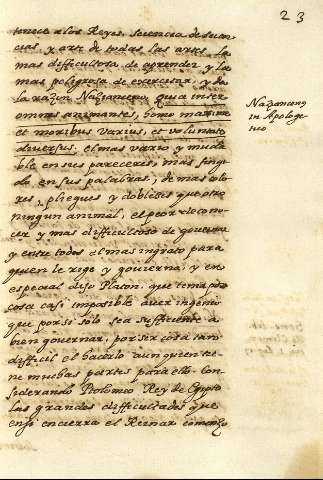 23
tenece a los Reyes, sciencia de scien
cias, y arte de todas las artes la
mas difficultosa de aprender y la
mas peligrosa de exercitar, y da
la razon Nazianceno quia inter
omnes animantes, homo maxime
et moribus varius, et voluntate
diversus. el mas vario y muda
ble en sus pareceres, mas fingi
do en sus palabras, de mas colo
res, pliegues y dobleses que otro
ningun animal, el peor de cono
cer y mas difficultoso de governar
y entre todos el mas ingrato para
quien le rige y govierna, y en
especial dijo Platon, que tenia por
cosa casi imposible aver ingenio
que por si solo sea sufficiente a
bien governar, por ser cosa tan
difficil el hacerlo aun quien tie
ne muchas partes para ello con
siderando Ptolomeo Rey de Egipto
las grandes difficultades que
en si encierra el Reinar comenzo
Nazianceno
in Apologe
tico